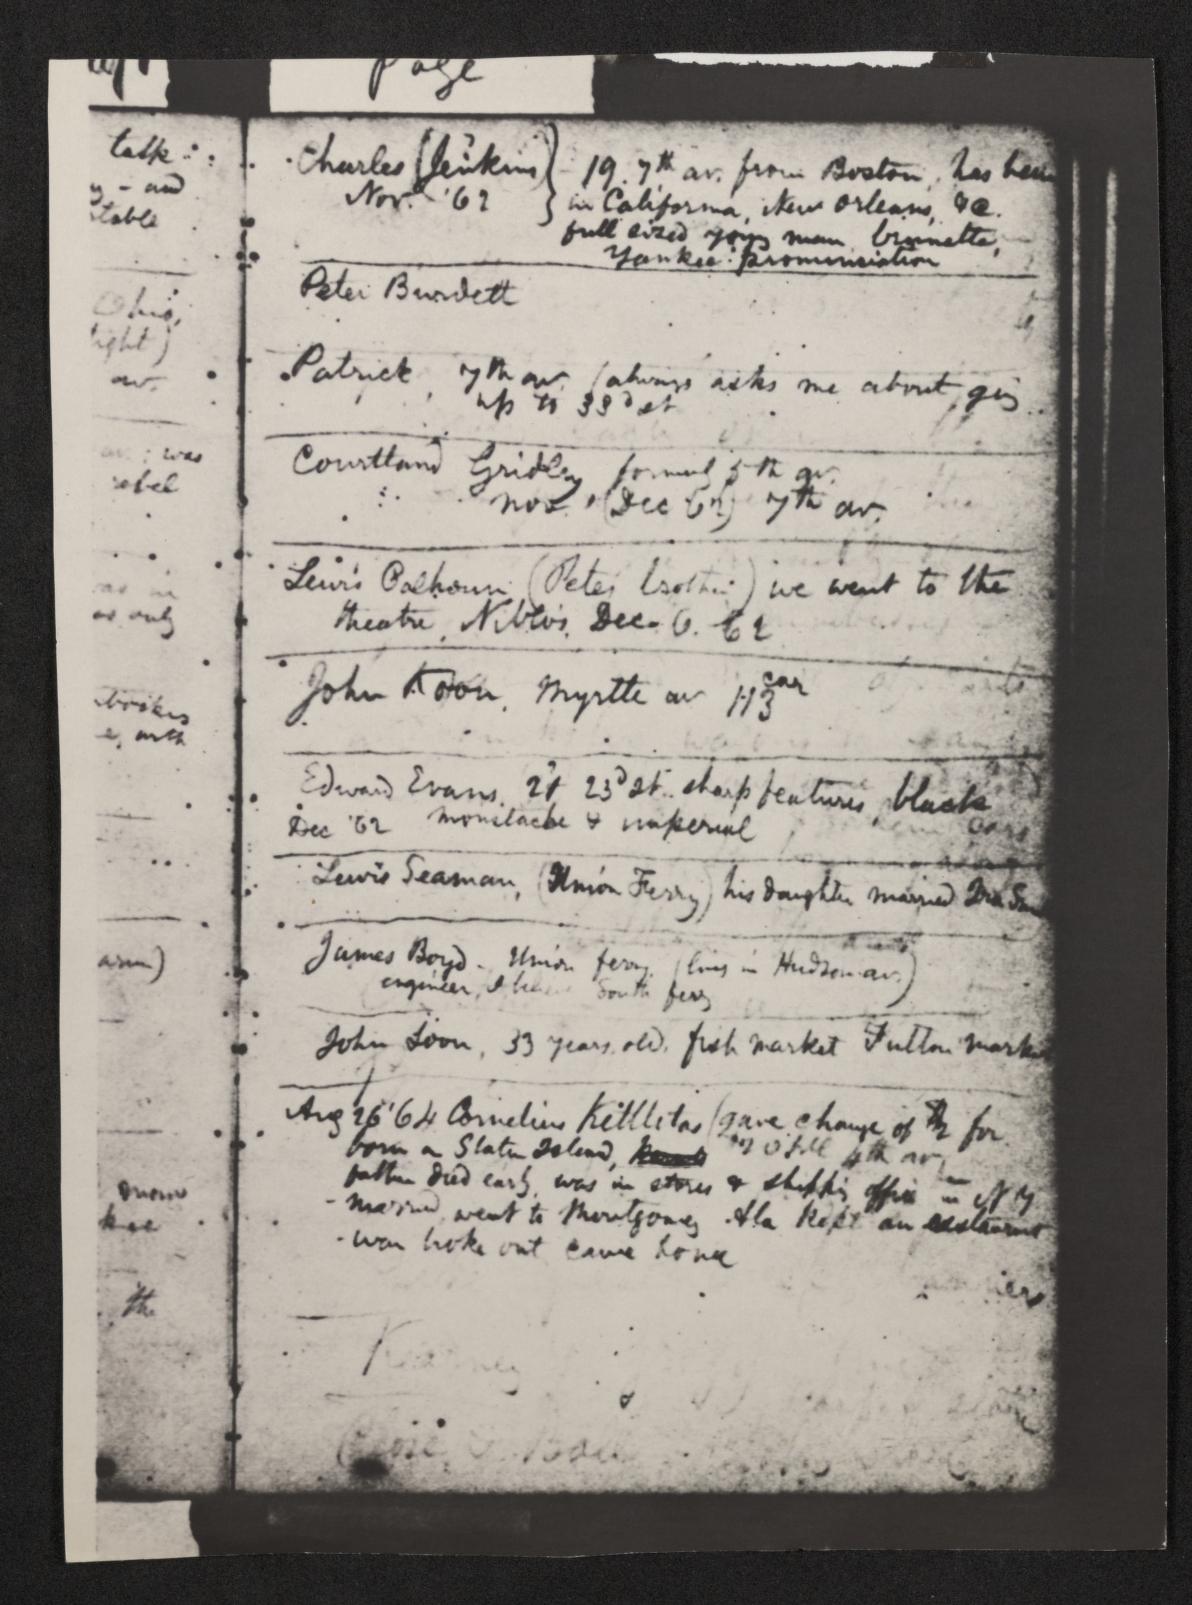 Page
talk
y - and
table
Ohio,
light)
av.
was
rebel
as only
e, with
arm)
the
Charles (Jenkins) 19. 7th av. from Boston, has been
Nov. '62 in California, New Orleans, &c.
full sized young man, brunette,
Yankee pronunciation
Peter Burdett
Patrick, 7th av. (always asks me about going
up to 33d st
Courtland Gridley, 5th av.
now (Dec 62) 7th av.
Lewis Calhoun (Pete's brother) we went to the
theatre, Niblo's, Dec. 6. 62
John Koon, Myrtle av car
113
Edward Evans. 23d st. sharp features, black
Dec '62 moustache & imperial
Lewis Seaman, (Union Ferry) his daughter married
James Boyd - Union ferry. (lives in Hudson av.)
engineer, I believe South ferry
John Loon, 33 years old. fish market Fulton market
Aug 26 '64 Cornelius Kittlitas (gave change of for
born on Staten Island, 4th av.
father died early, was in stores & shipping office in N Y
- married, went to Montgomery Ala kept an restaurant
- war broke out came home
Kearney